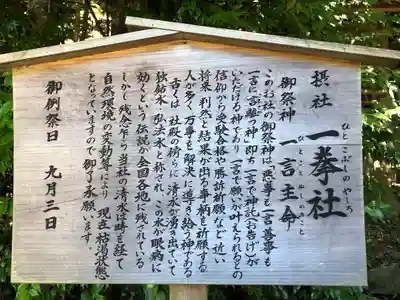 摂社 一拳社
ひとこぶしのやしろ
御祭神 一言主命
ひとことぬしのみこと
このお社の御祭神は「悪事も一言善事も
一言に宣離の神即ち一言で神託(お告げ)が
いただける神であり、一言で願いが叶えられるとの
信仰から受験合格や勝訴祈願など近い
将来判然と結果が出る事柄を祈願する
人が多く、万事を解決に導き給う神である
古くは社殿の祈りに清水が湧き出ていて
独鈷水、弘法水と称され、この水が眼病に
効くという伝説が全国各地に残されている
しかし残念乍ら当社の清水は時を経て
自然環境の変動等により、現在枯渇状態
となっていますので、御了承願います。
御例祭日 九月三日